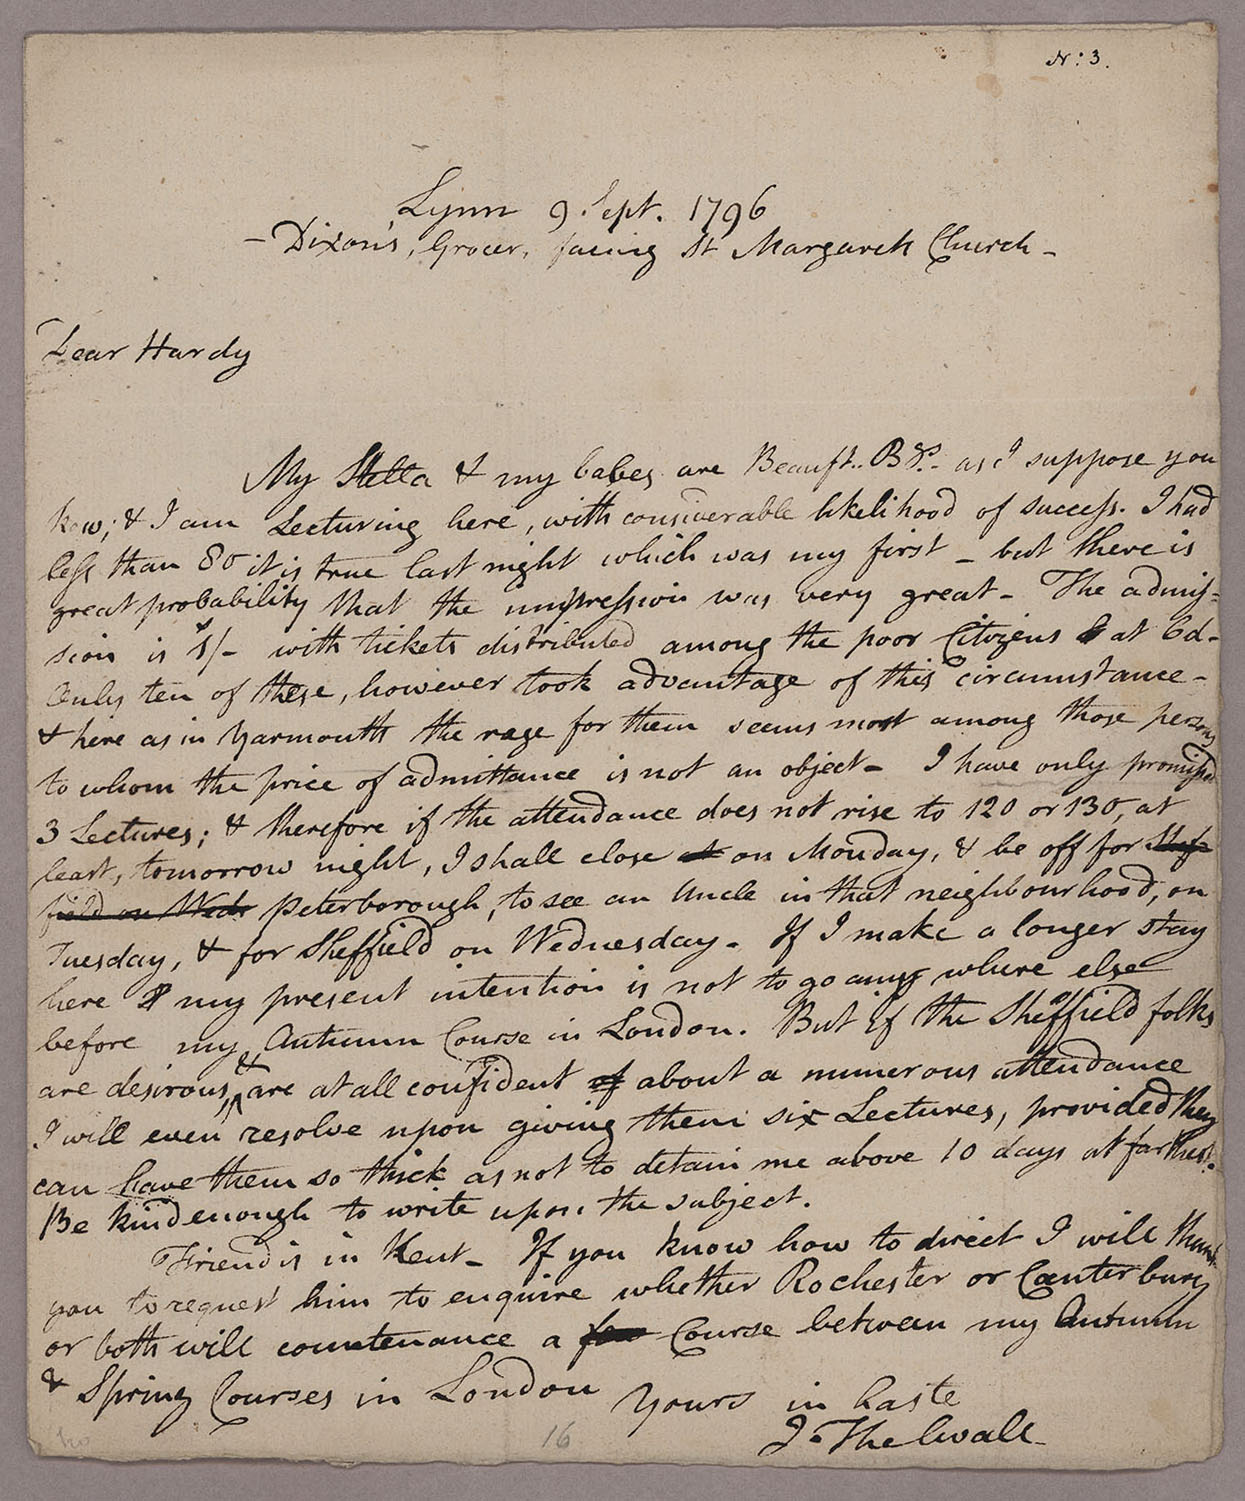 N: 3.
Lynn 9. Sept. 1796
- Dixon's, Grocer, facing St Margarets Church -
Dear Hardy
My Stella & my babes are Beauft.. Bds.- as I suppose you
know; & I am Lecturing here, with considerable likelihood of success. I had
less than 80 it is true last night which was my first - but there is
great probability that the impression was very great - The admis-
sion is 1/- with tickets distributed among the poor Citizens at 6d -
Only ten of these, however took advantage of this circumstance -
& here as in Yarmouth the rage for them seems most among those persons
to whom the price of admittance is not an object - I have only promised
3 Lectures; & therefore if the attendance does not rise to 120 or 130, at
least, tomorrow night, I shall close at on Monday, & be off for Shef-
field on Wedn Peterborough, to see an Uncle in that neighbourhood, on
Tuesday, & for Sheffield on Wednesday - If I make a longer stay
here my present intention is not to go any where else
before my Autumn Course in London. But if the Sheffield folks
are desirous, & are at all confident of about a numerous attendance
I will even resolve upon giving them six Lectures, provided they
can have them so thick as not to detain me above 10 days at farthest.
Be kind enough to write upon the subject.
Friend is in Kent - If you know how to direct I will thank
you to request him to enquire whether Rochester or Canterbury
or both will countenance a few Course between my Autumn
& Spring Courses in London
Yours in haste
J. Thelwall
16